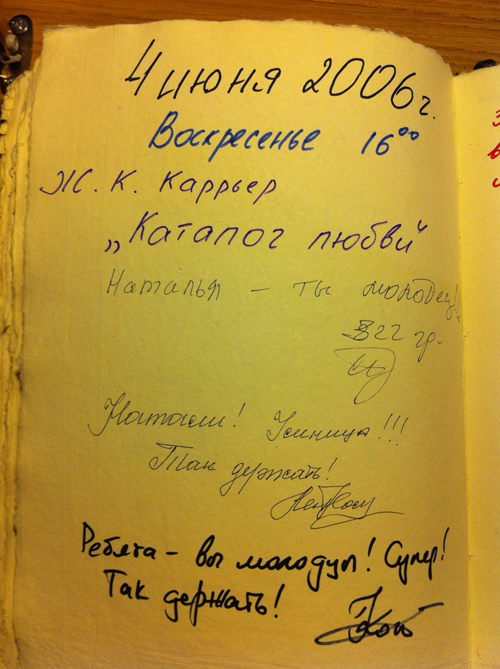 4 июня 2006г.
Воскресенье 16⁰⁰
Ж. К. Каррьер
„Каталог любви"
Наталья – ты молодец!
322 гр.
Наташи! Умница!!!
Так держать!
Ребята – вы молодцы! Супер!
Так держать!